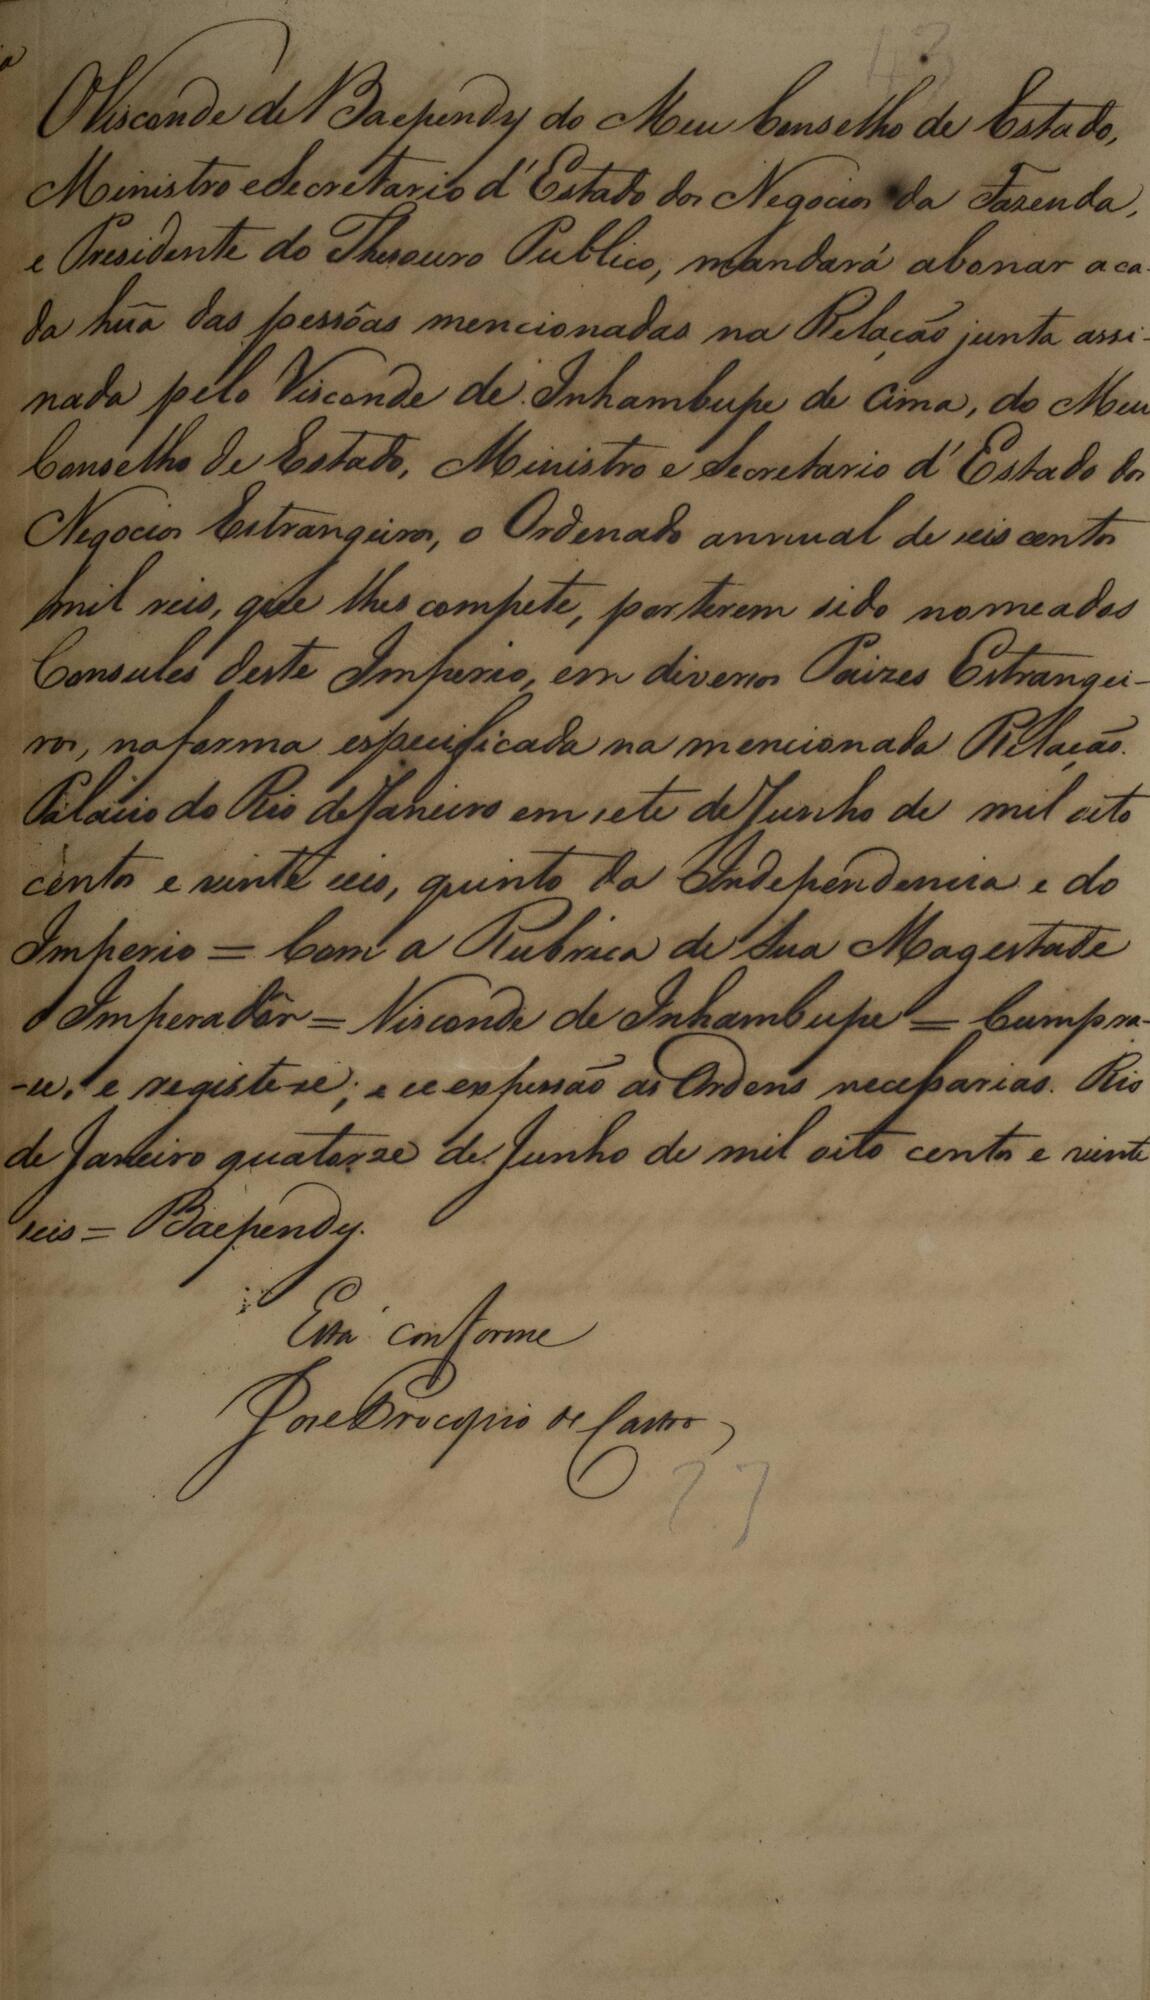 43
O Visconde de Baependy do Meu Conselho de Estado,
Ministro e Secretario d'Estado dos Negocios da Fazenda,
e Presidente do Thesouro Publico, mandará abonar a ca-
da hũa das pessôas mencionadas na Relação junta assi-
nada pelo Visconde de Inhambupe de Cima, do Meu
Conselho de Estado, Ministro e Secretario d'Estado dos
Negocios Estrangeiros, o Ordenado annual de seis centos
mil reis, que lhes compete, por terem sido nomeados
Consules deste Imperio, em diversos Paizes Estrangei-
ros, na forma especificada na mencionada Relação.
Palacio do Rio de Janeiro em sete de Junho de mil oito
centos e vinte seis, quinto da Independencia e do
Imperio = Com a Rubrica de Sua Magestade
o Imperadôr = Visconde de Inhambupe = Cumpra-
-se, e registe-se; e se expessão as Ordens necessarias. Rio
de Janeiro quatorze de Junho de mil oito centos e vinte
seis = Baependy.
Está conforme
José Procopio de Castro
77